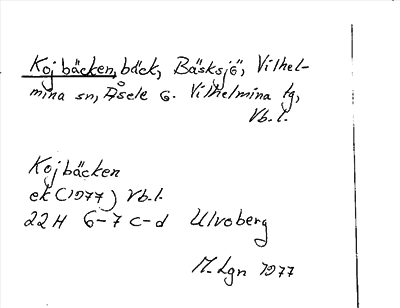 Kojbäcken, bäck, Bäsksjö, Vilhel-
mina sn, Åsele o. Vilhelmina lg,
Vb.l.
Kojbäcken
ek (1977) Vb.l.
22H 6-7 c-d Ulvoberg
M. Lgn 1977